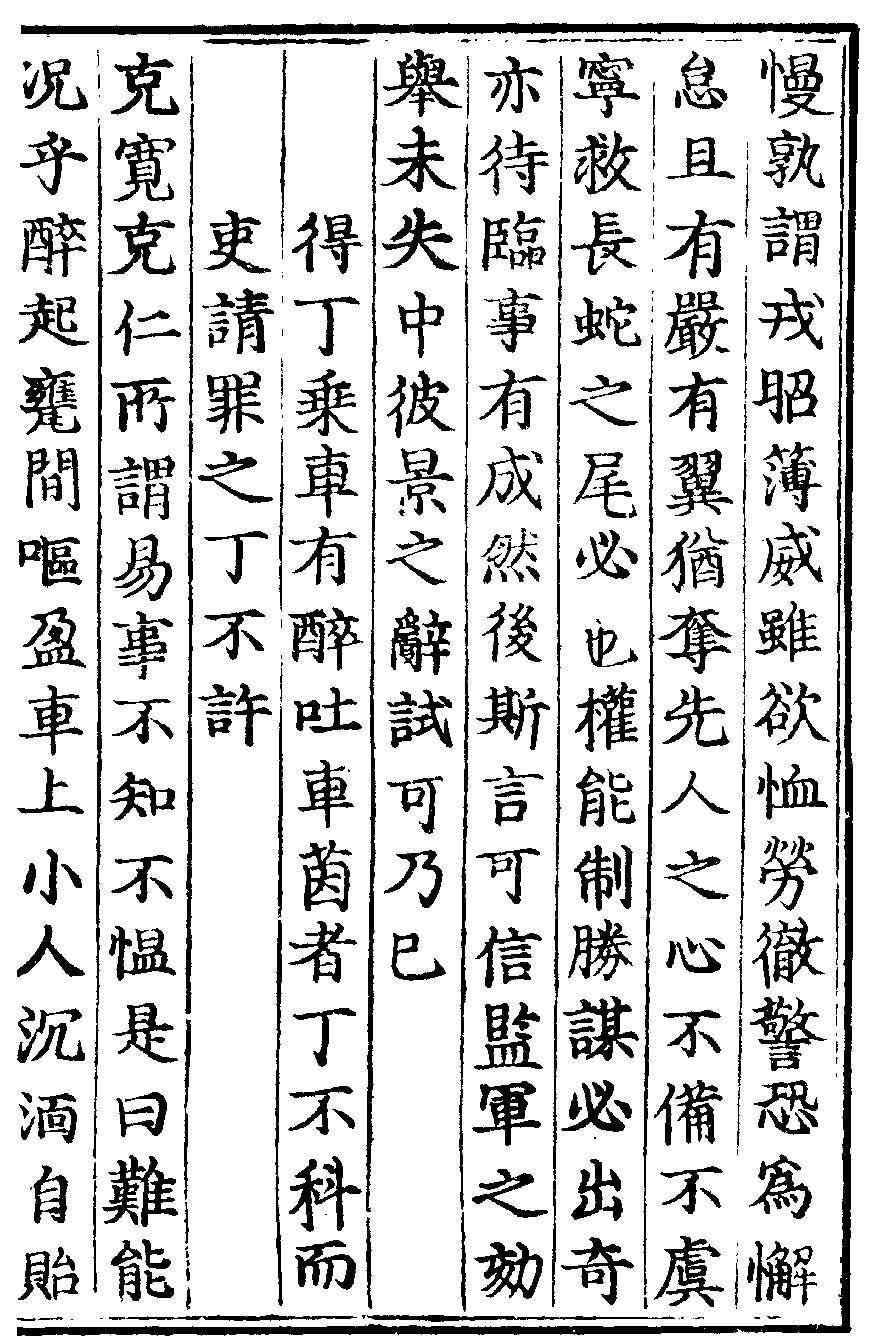 慢孰謂戎昭薄威雖欲恤勞徹警恐爲懈
怠且有嚴有翼猶奪先人之心不備不虞
寧救長蛇之尾必也權能制勝謀必出奇
亦待臨事有成然後斯言可信監軍之劾
舉未失中彼景之辭試可乃已
得丁乗車有醉吐車茵者丁不科而
吏請罪之丁不許
克寛克仁所謂易事不知不愠是曰難能
况乎醉起甕間嘔盈車上小人沉湎自貽